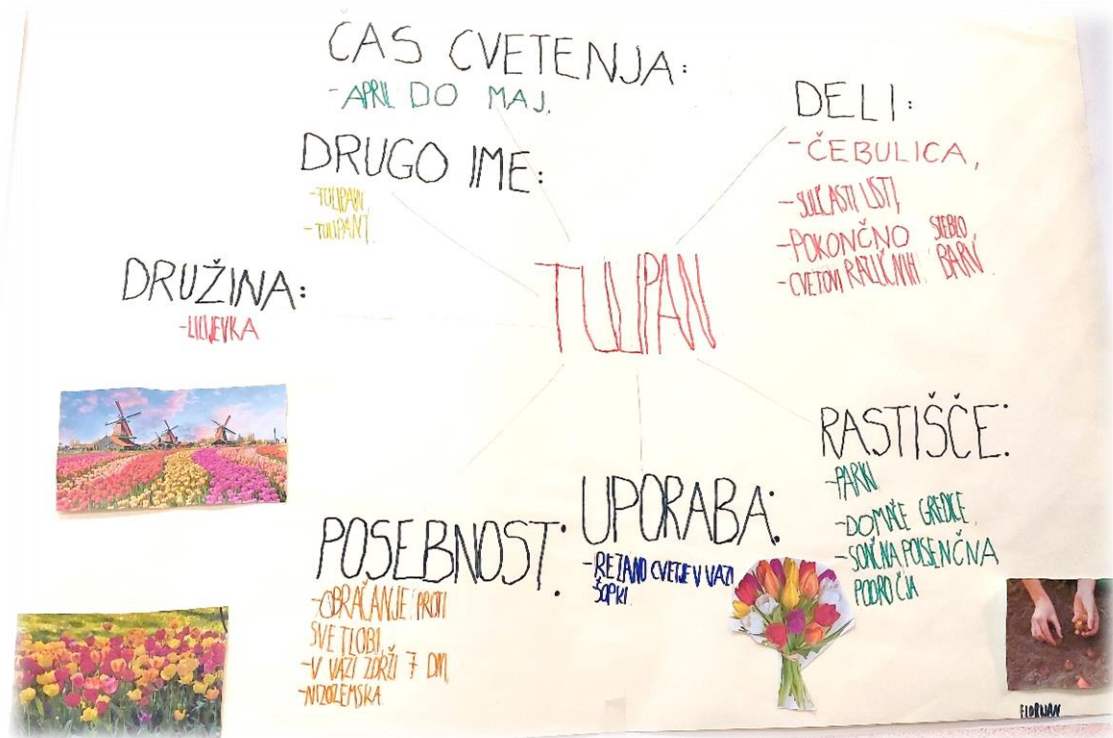 ČAS CVETENJA:
- APRIL DO MAJ.
DRUGO IME:
- TULIPAN,
- TULIPANT.
DRUŽINA:
- LILIJEVKA
TULIPAN
DELI:
- ČEBULICA,
- SULIČASTI LISTI,
- POKONČNO STEBLO,
- CVETOVI RAZLIČNIH BARV.
RASTIŠČE:
- PARKI
- DOMAČE GREDICE,
- SONČNA POLSENČNA
PODROČJA
UPORABA:
- REZANO CVETJE V VAZI
ŠOPKI.
POSEBNOST:
- OBRAČANJE PROTI
SVETLOBI,
- V VAZI ZDRŽI 7 DNI,
- NIZOZEMSKA
FLORIJAN